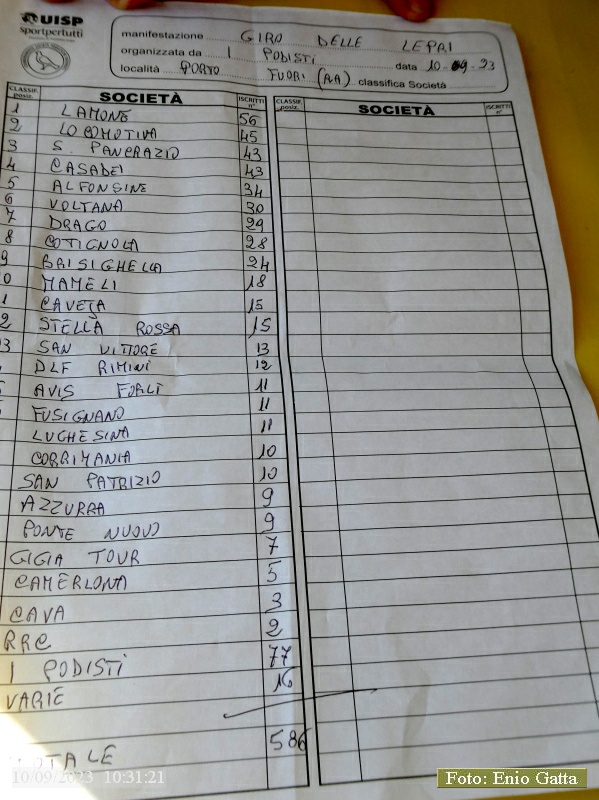 UISP
sportpertutti
manifestazione GIRO DELLE LEPRI
organizzata da I PODISTI data 10-09-23
località PORTO FUORI (RA) classifica Società
CLASSIF. posiz. SOCIETÀ ISCRITTI n° CLASSIF. posiz. SOCIETÀ ISCRITTI n°
1 LAMONE 56
2 LOCOMOTIVA 45
3 S. PANCRAZIO 43
4 CASADEI 43
5 ALFONSINE 34
6 VOLTANA 30
7 DRAGO 29
8 COTIGNOLA 28
9 BRISIGHELLA 24
0 MAMELI 18
1 CAVEJA 15
2 STELLA ROSSA 15
3 SAN VITTORE 13
DLF RIMINI 12
AVIS FORLÌ 11
FUSIGNANO 11
LUGHESINA 11
CORRIMANIA 10
SAN PATRIZIO 10
AZZURRA 9
PONTE NUOVO 9
GIGIA TOUR 7
CAMERLONA 5
CAVA 3
RRC 2
I PODISTI 77
VARIE 16
TOTALE 586
10/09/2023 10:31:21
Foto: Enio Gatta